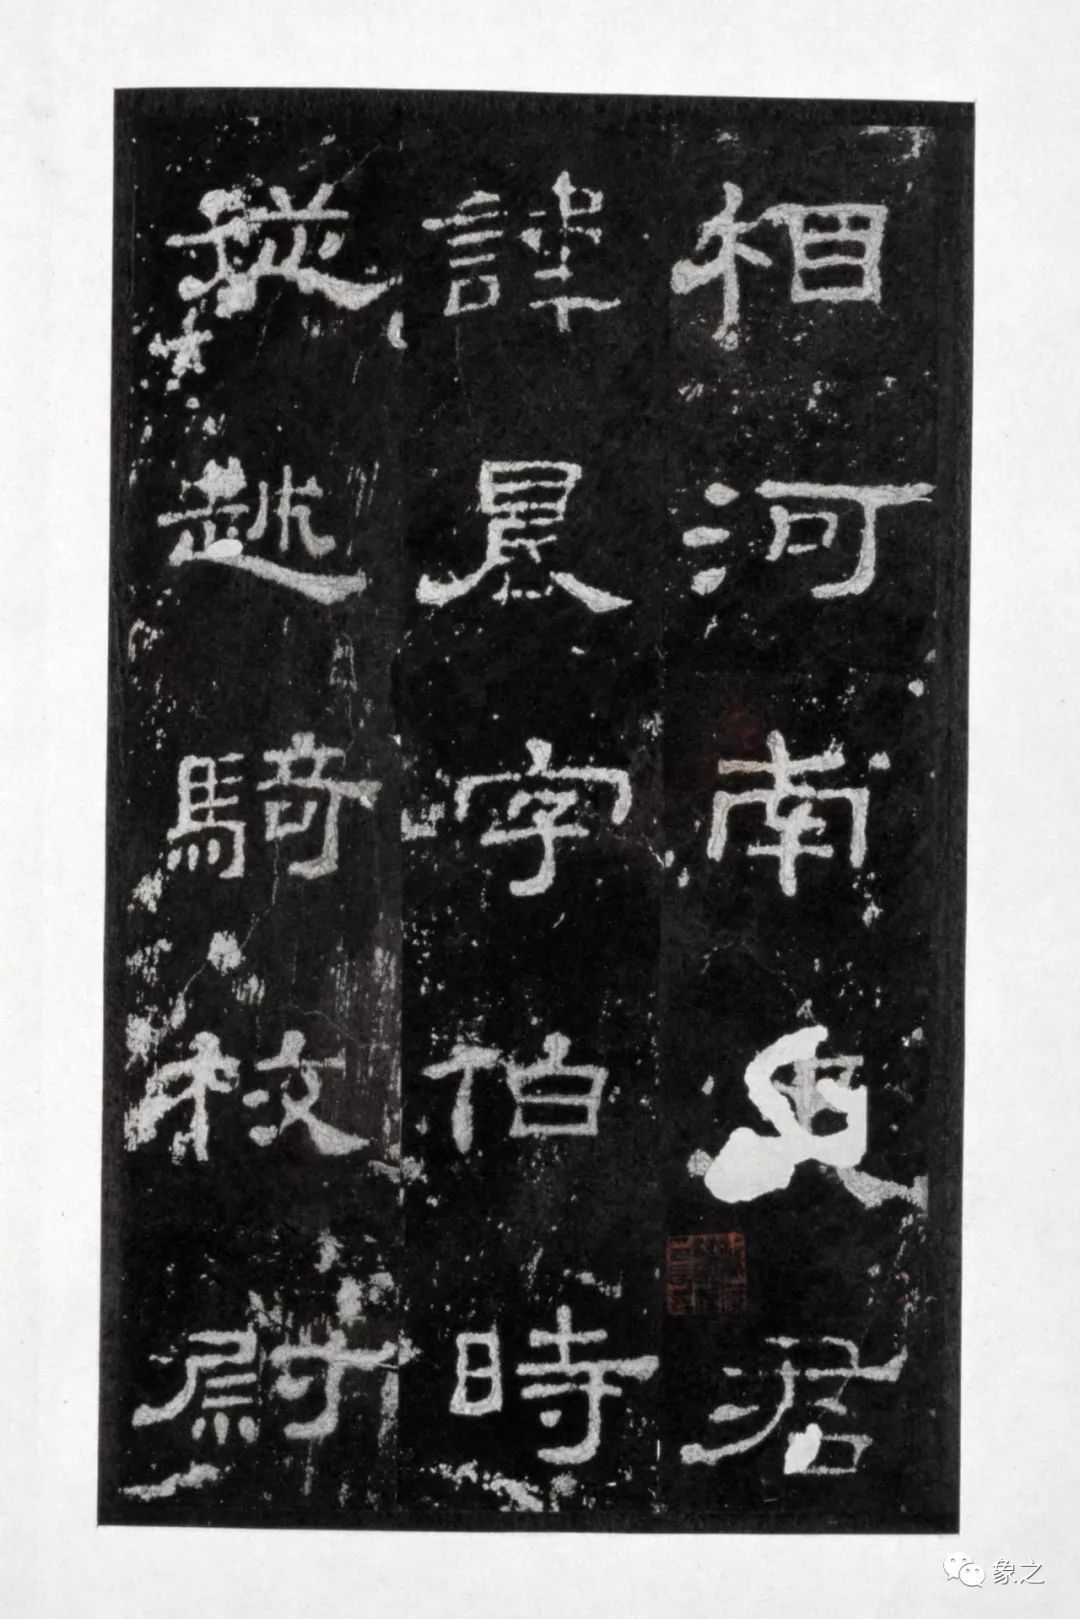 相河南史君
諱晨字伯時
從越騎校尉
象之